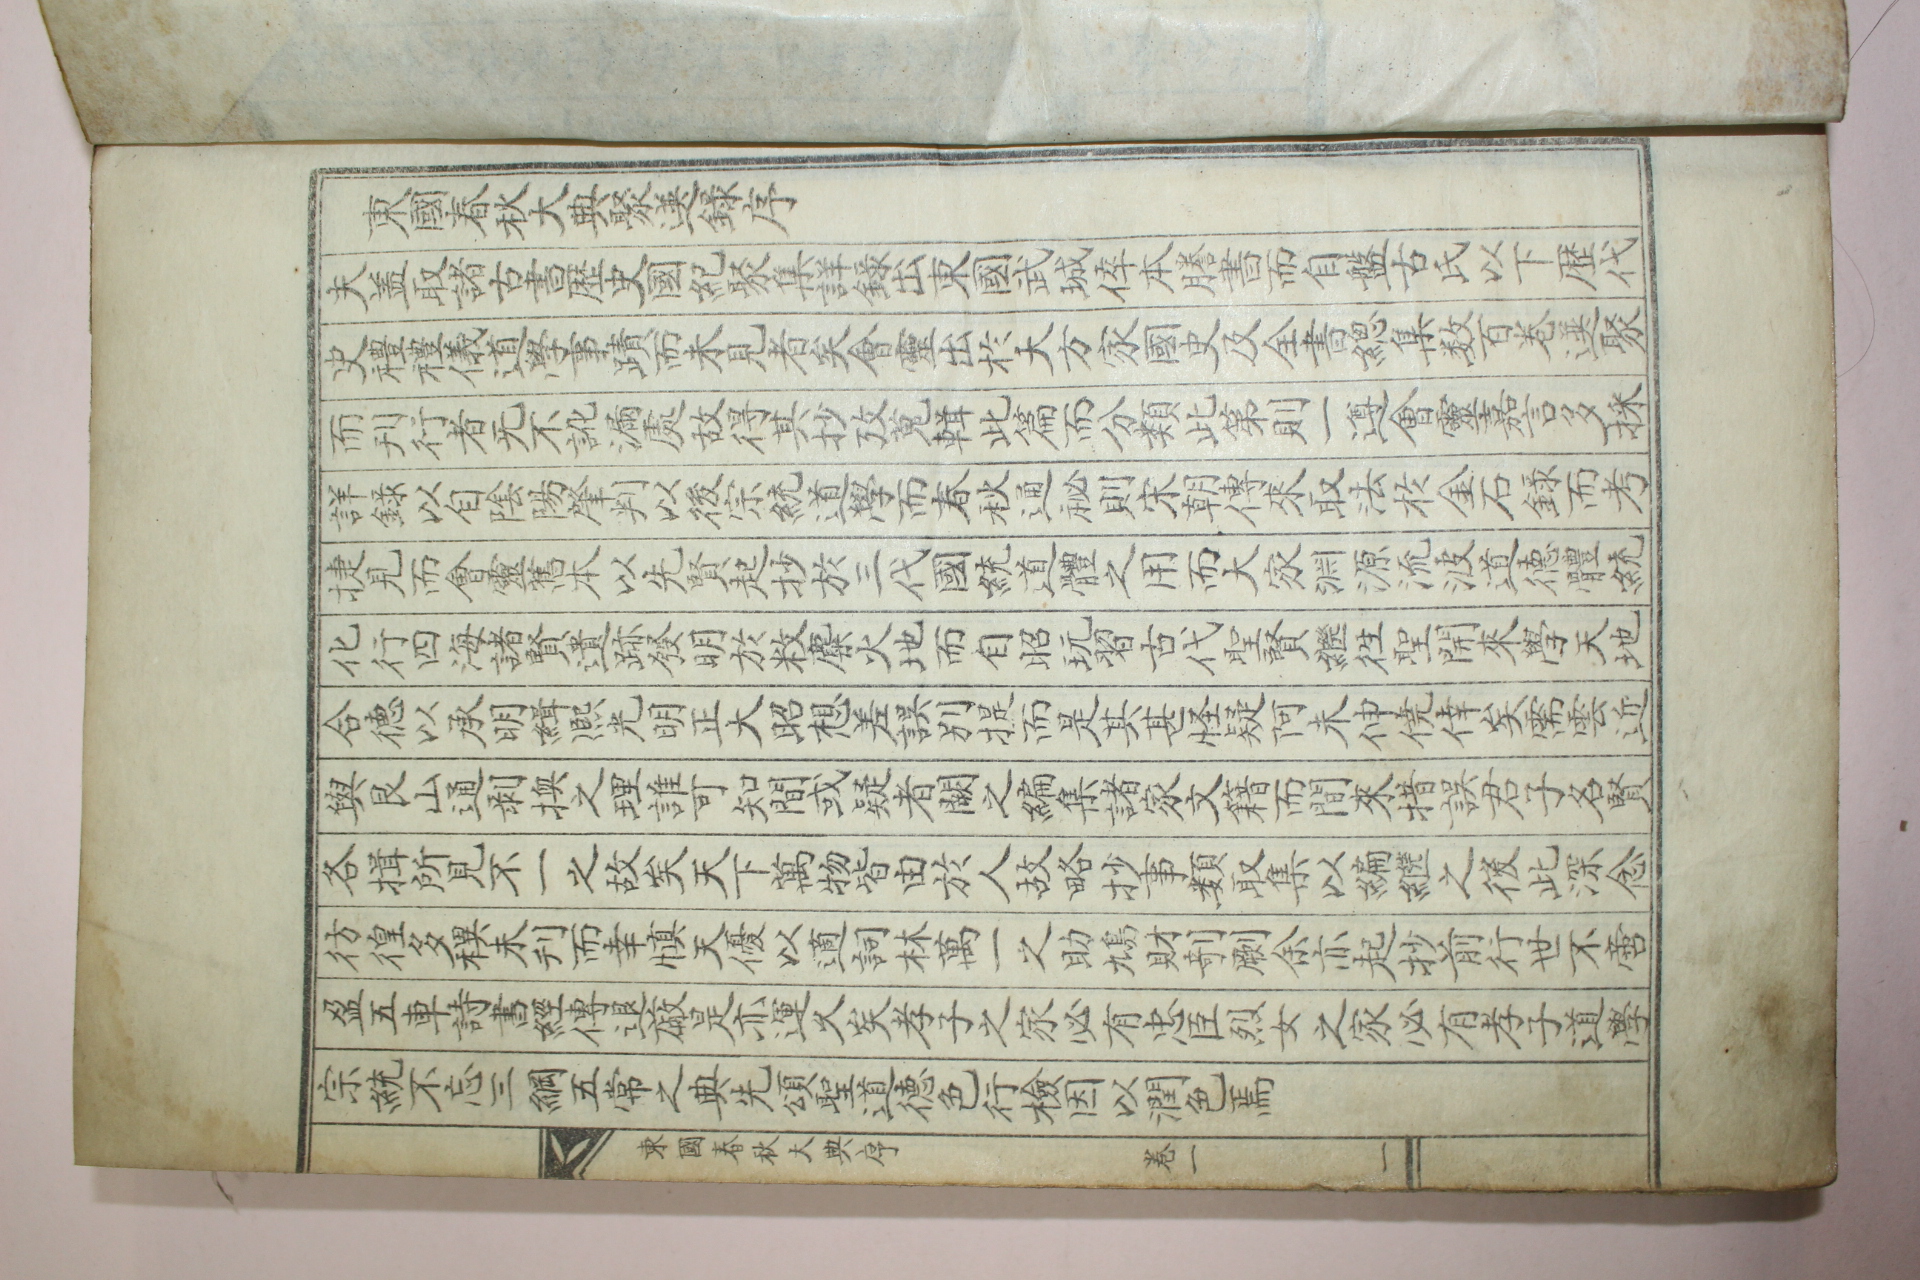 東國春秋大典聚選錄序
夫盖取諸古書歷史國紀聚集詳錄出東國武城倖本勝書而自盤古氏以下歷代
史禮禮儀道學事蹟而未見者矣會靈出於大方家國史及全書總集数百卷選聚
而刊行者无不訛漏處故得其抄攷蒐輯此篇而分類此第則一遵會靈嘉言多採
詳錄以自陰陽肇判以後宗統道學而春秋通祕則宋朝傳來取法於金石錄而考
捷見而會靈舊本以先賢起抄於三代國統道體之用而大家淵源流波道德體統
化行四海諸賢遺跡發明於敉糜火地而自昭玩習古代聖賢繼徃聖開來學天地
合德以承明緝熙光明正大昭想差誤別提而是其甚怪疑阿未伸僥倖矣需雲近
與艮山通剥換之理誰可知間或疑者闕之編集諸家文籍而間來措誤君子名賢
各揖所見不一之故矣天下萬物皆由於人故略抄事類取集以編繼之後此深念
彷徨多稘未刋而幸慎天優以適詞林萬一之助鳩財剞劂余亦起抄前行世不啻
盈五車詩書經傳退蔽是亦運久矣孝子之家必有忠臣烈女之家必有孝子道學
宗統不忘三綱五常之典先頌聖道德色行檢因以潤色焉
東國春秋大典序 卷一 一